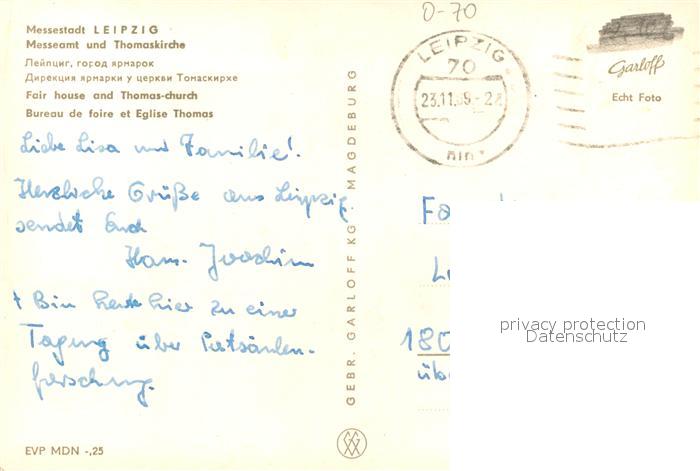 0-70
Messestadt LEIPZIG
Messeamt und Thomaskirche
Лейпциг, город ярмарок
Дирекция ярмарки у церкви Томаскирхе
Fair house and Thomas-church
Bureau de foire et Eglise Thomas
LEIPZIG
70
23.11.69-22
Garloff
Echt Foto
Liebe Lisa und Familie!
Herzliche Grüße aus Leipzig
sendet Euch
Hans-Joachim
Bin heute hier zu einer
Tagung über Postsäulen-
forschung.
GEBR. GARLOFF KG MAGDEBURG
Fa
180
üb
privacy protection
Datenschutz
EVP MDN -,25